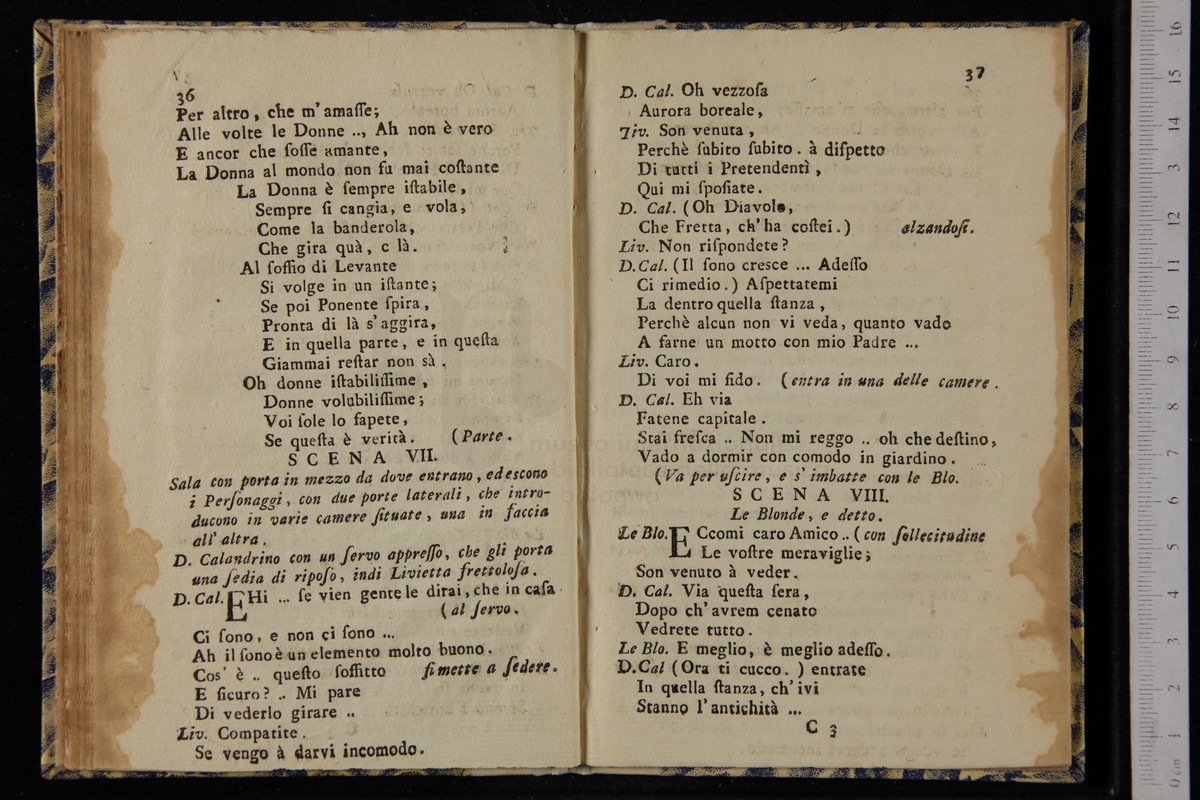 36
Per altro, che m' amaſſe;
Alle volte le Donne .., Ah non è vero
E ancor che foſſe amante,
La Donna al mondo non fu mai coſtante
La Donna è ſempre iſtabile,
Sempre ſi cangia, e vola,
Come la banderola,
Che gira quà, e là.
Al ſoffio di Levante
Si volge in un iſtante;
Se poi Ponente ſpira,
Pronta di là s'aggira,
E in quella parte, e in queſta
Giammai reſtar non sà.
Oh donne iſtabiliſſime,
Donne volubiliſſime;
Voi ſole lo ſapete,
Se queſta è verità. (Parte.
SCENA VII.
Sala con porta in mezzo da dove entrano, ed escono
i Perſonaggi, con due porte laterali, che intro-
ducono in varie camere ſituate, una in faccia
all' altra.
D. Calandrino con un ſervo appreſſo, che gli porta
una ſedia di ripoſo, indi Livietta frettoloſa.
D. Cal. EHi ... ſe vien gente le dirai, che in caſa
(al ſervo.
Ci ſono, e non ci ſono ...
Ah il ſono è un elemento molto buono.
Cos' è .. queſto ſoffitto ſi mette a ſedere.
E ſicuro? .. Mi pare
Di vederlo girare ..
Liv. Compatite.
Se vengo à darvi incomodo.
37
D. Cal. Oh vezzoſa
Aurora boreale,
Liv. Son venuta,
Perchè ſubito ſubito. à diſpetto
Di tutti i Pretendentì,
Qui mi ſpoſiate.
D. Cal. (Oh Diavolo,
Che Fretta, ch' ha coſtei.) alzandoſi.
Liv. Non riſpondete?
D. Cal. (Il ſono cresce ... Adeſſo
Ci rimedio.) Aſpettatemi
La dentro quella ſtanza,
Perchè alcun non vi veda, quanto vado
A farne un motto con mio Padre ...
Liv. Caro.
Di voi mi fido. (entra in una delle camere.
D. Cal. Eh via
Fatene capitale.
Stai freſca .. Non mi reggo .. oh che deſtino,
Vado a dormir con comodo in giardino.
(Va per uſcire, e s' imbatte con le Blo.
SCENA VIII.
Le Blonde, e detto.
Le Blo. ECcomi caro Amico .. (con ſollecitudine
Le voſtre meraviglie;
Son venuto à veder.
D. Cal. Via queſta ſera,
Dopo ch' avrem cenato
Vedrete tutto.
Le Blo. E meglio, è meglio adeſſo.
D. Cal (Ora ti cucco.) entrate
In quella ſtanza, ch' ivi
Stanno l' antichità ...
C 3